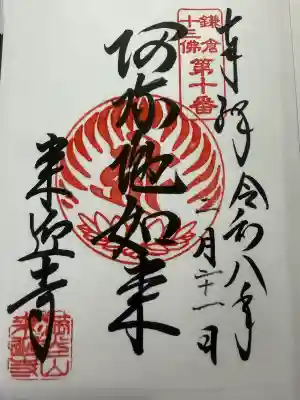 奉拝 令和八年
二月二十一日
鎌倉
十三佛
第十番
阿弥陀如来
来迎寺
満光山
来迎寺